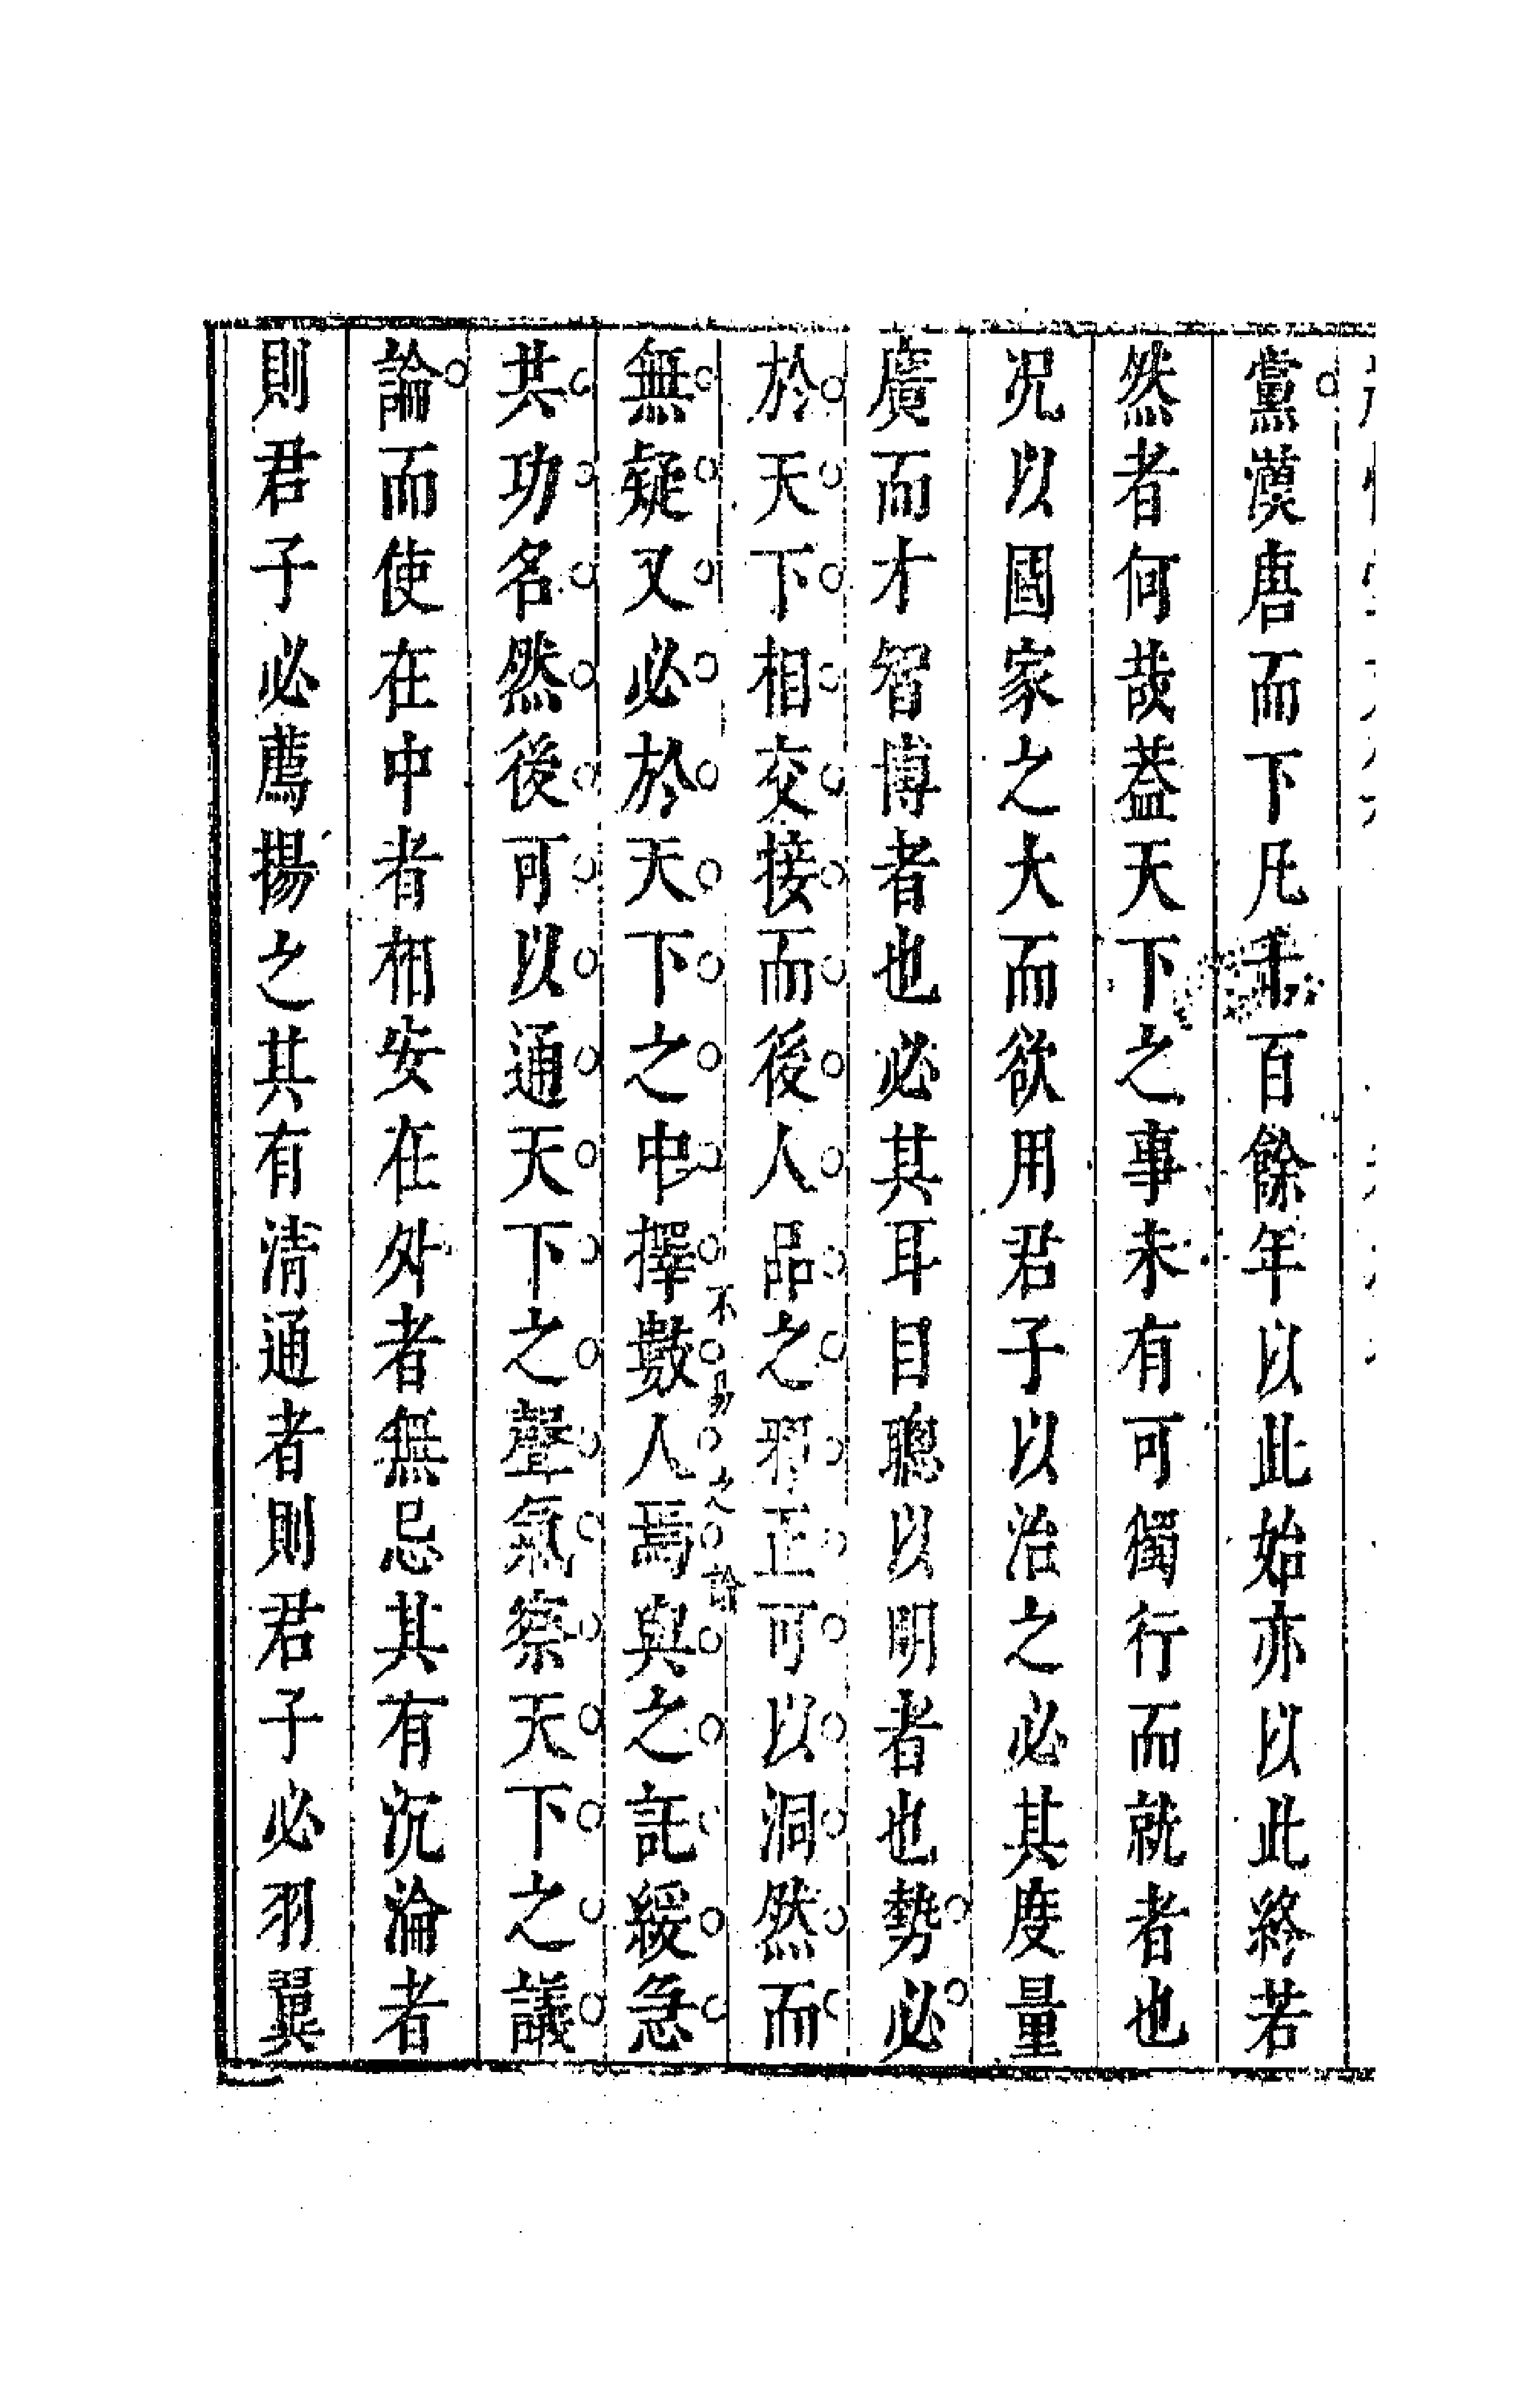 黨漢唐而下凡千百餘年以此始亦以此終若
然者何哉葢天下之事未有可獨行而就者也
况以國家之大而欲用君子以治之必其度量
廣而才智博者也必其耳目聰以明者也勢必
於天下相交接而後人品之邪正可以洞然而
無疑又必於天下之中擇數人焉與之託緩急
不易之論
共功名然後可以通天下之聲氣察天下之議
論而使在中者相安在外者無忌其有沉淪者
則君子必薦揚之其有清通者則君子必羽翼